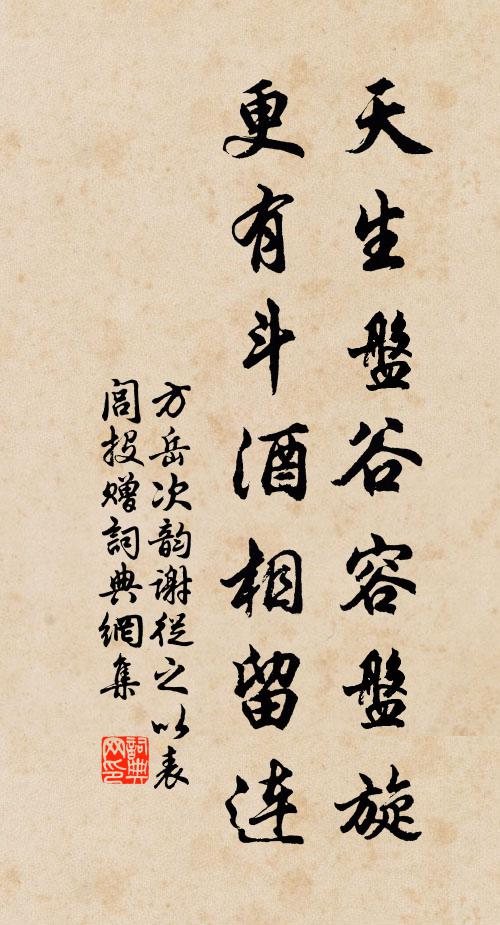 天生盤谷容盤旋
更有斗酒相留連
方岳次韵謝從之以表
閭投贈詞典網集
詞典网印